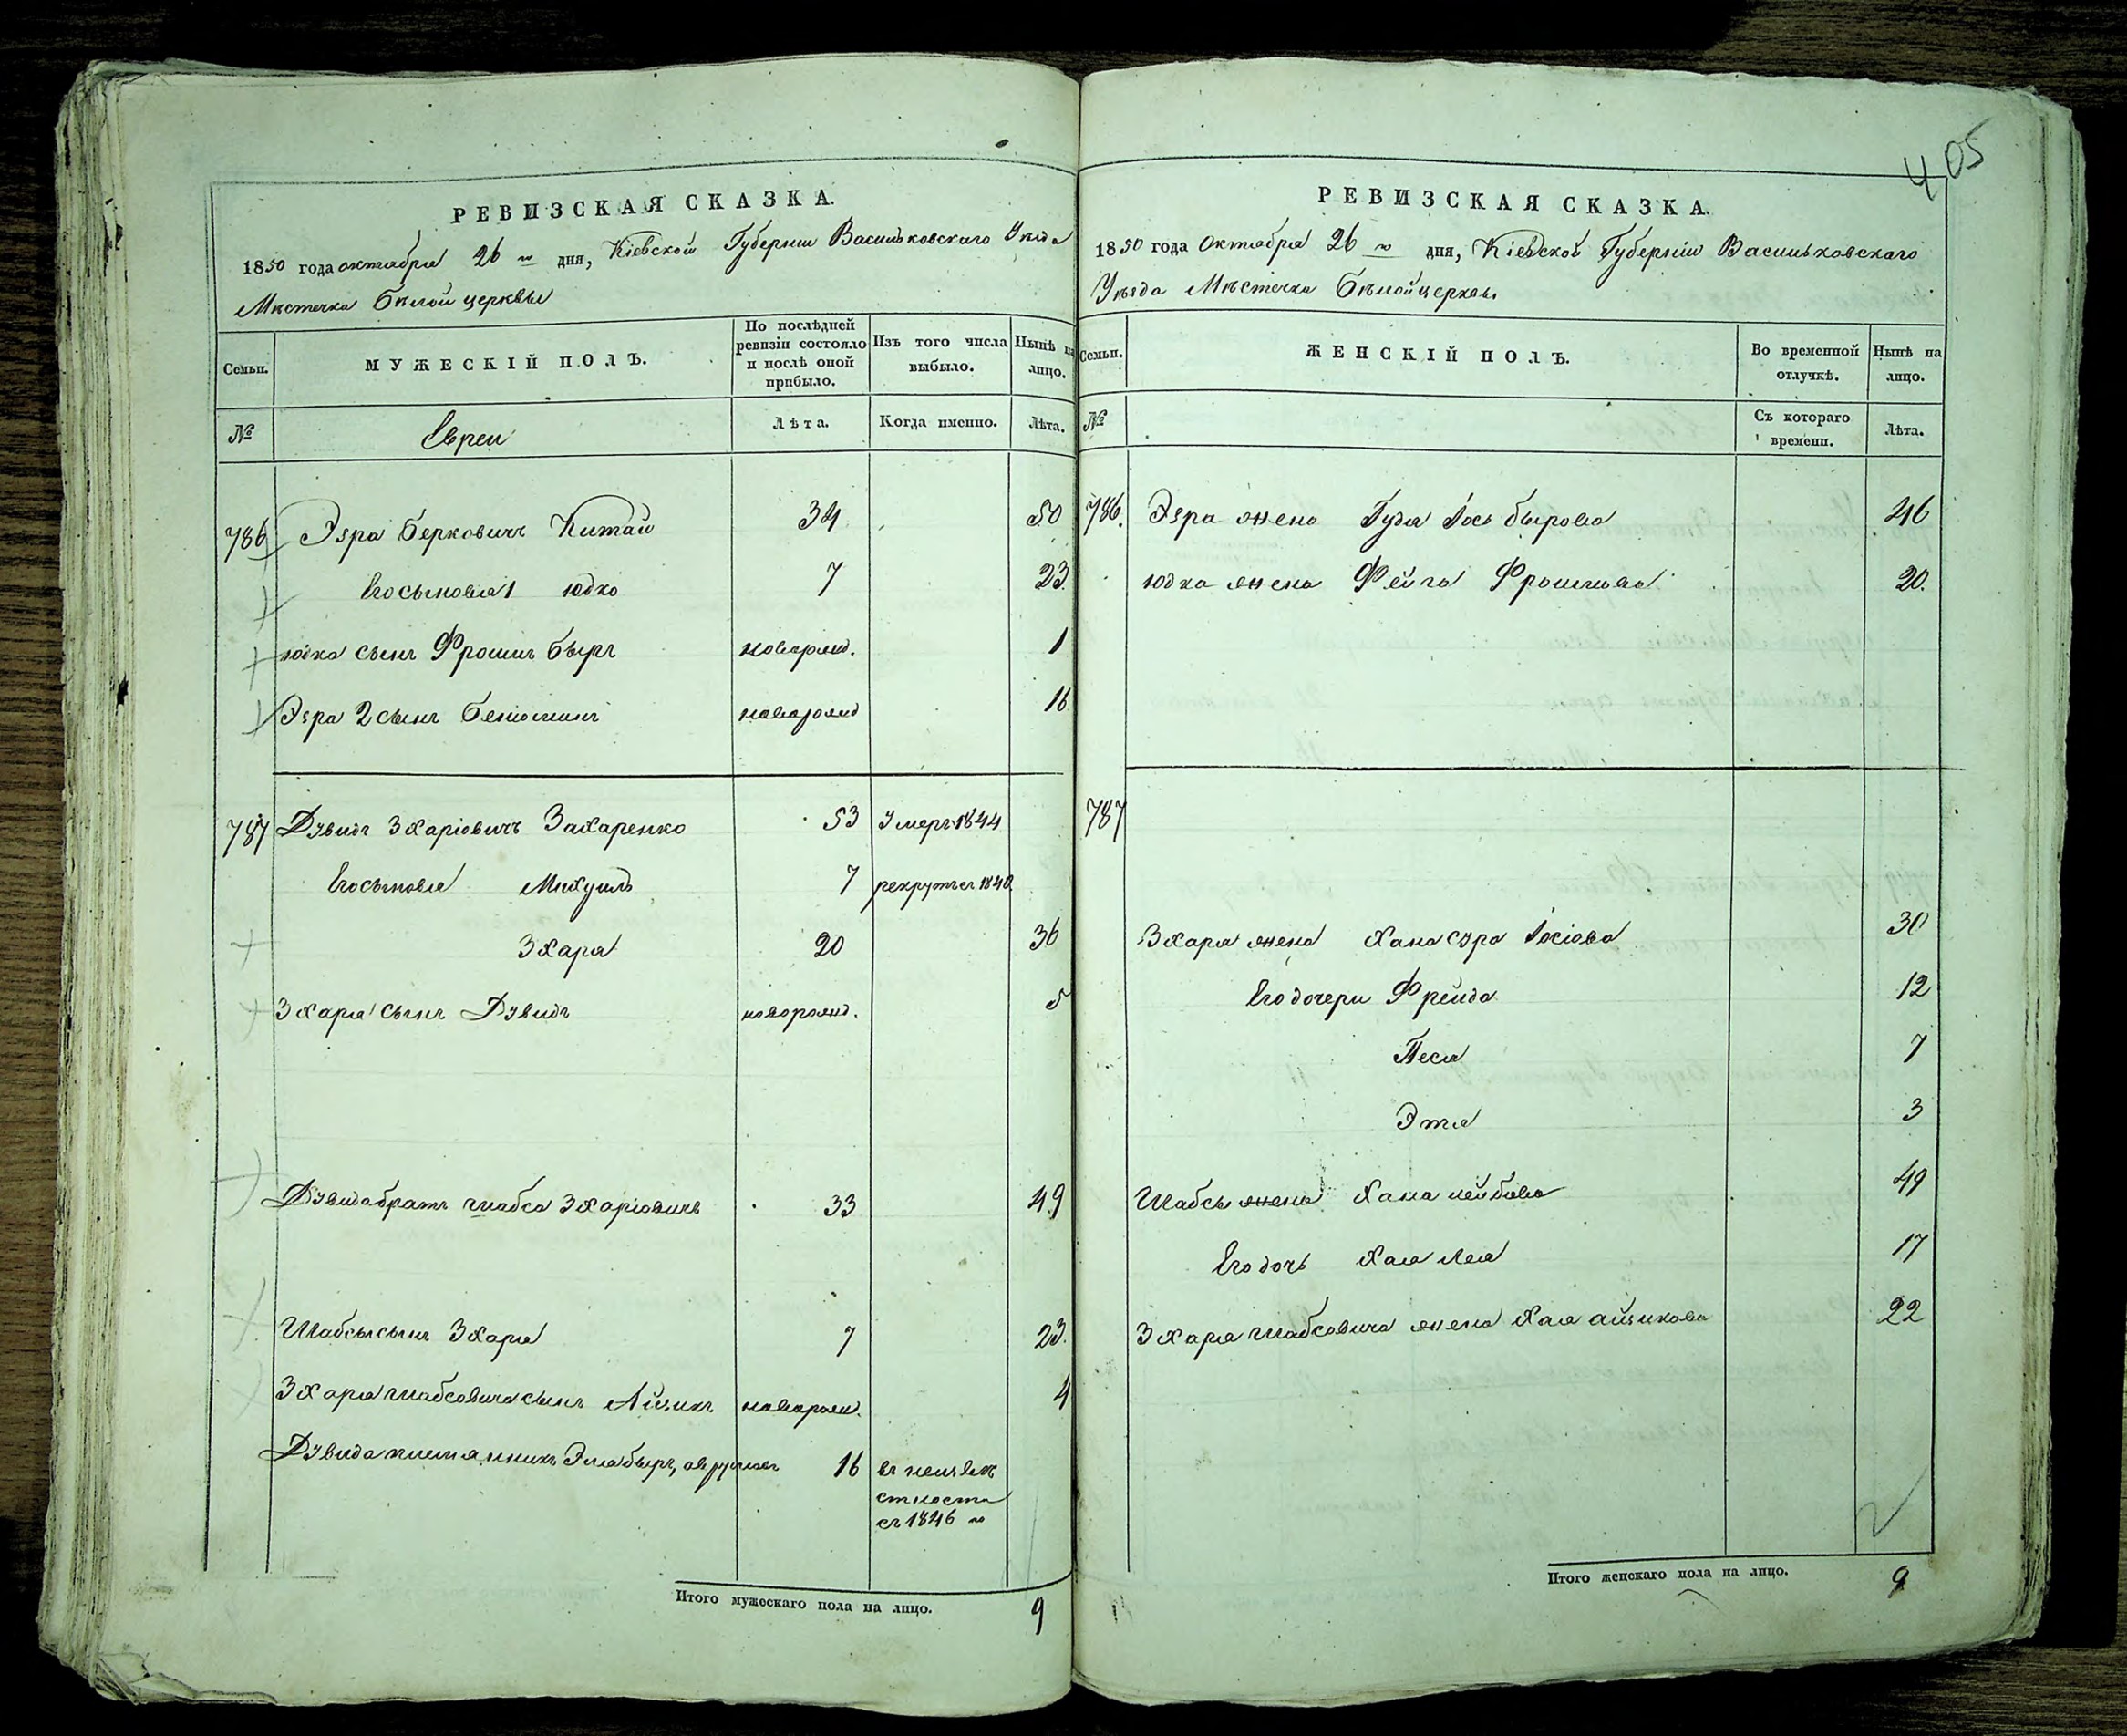 405
РЕВИЗСКАЯ СКАЗКА.
1850 года октября 26 го дня, Кіевской Губерніи Васильковскаго Уѣзда
Мѣстечка Бѣлой церквы
Семьи.
МУЖЕСКІЙ ПОЛЪ.
По послѣдней ревизіи состояло и послѣ оной прибыло.
Изъ того числа выбыло.
Нынѣ на лицо.
№
Евреи
Лѣта.
Когда именно.
Лѣта.
786 Эзра Берковичъ Китай 34 50
Его сыновья 1 Юдко 7 23.
Юдка сынъ Фроимъ Беръ новорожд. 1
Эзра 2 сынъ Беніоминъ новорожд 16
787 Дувидъ Зхаріовичъ Захаренко 53 Умеръ 1844
Его сыновья Михуиль 7 рекрутъ съ 1840
Зхаря 20 36
Зхаря сынъ Дувидъ новорожд. 5
Дувида братъ Шабса Зхаріовичъ 33 49
Шабсы сынъ Зхаря 7 23.
Зхаря Шабсовича сынъ Айзикъ новорож. 4
Дувида племянникъ 16 въ неизвѣ
стности
съ 1846 го
Итого мужескаго пола на лицо. 9
РЕВИЗСКАЯ СКАЗКА.
1850 года Октября 26 го дня, Кіевской Губерніи Васильковскаго
Уѣзда Мѣстечка Бѣлой церквы
Семьи.
ЖЕНСКІЙ ПОЛЪ.
Во временной отлучкѣ.
Нынѣ на лицо.
№
Съ котораго времени.
Лѣта.
786. Эзра жена Гудя Іось Берова 46
Юдка жена Фейга Фроимова 20.
787
Зхаря жена Хана Сура Іосіова 30
Его дочери Фрейда 12
Песя 7
Этя 3
Шабсы жена Хана Лейбова 49
Его дочь Хая Лея 17
Зхаря Шабсовича жена Хая Айзикова 22
Итого женскаго пола на лицо. 9